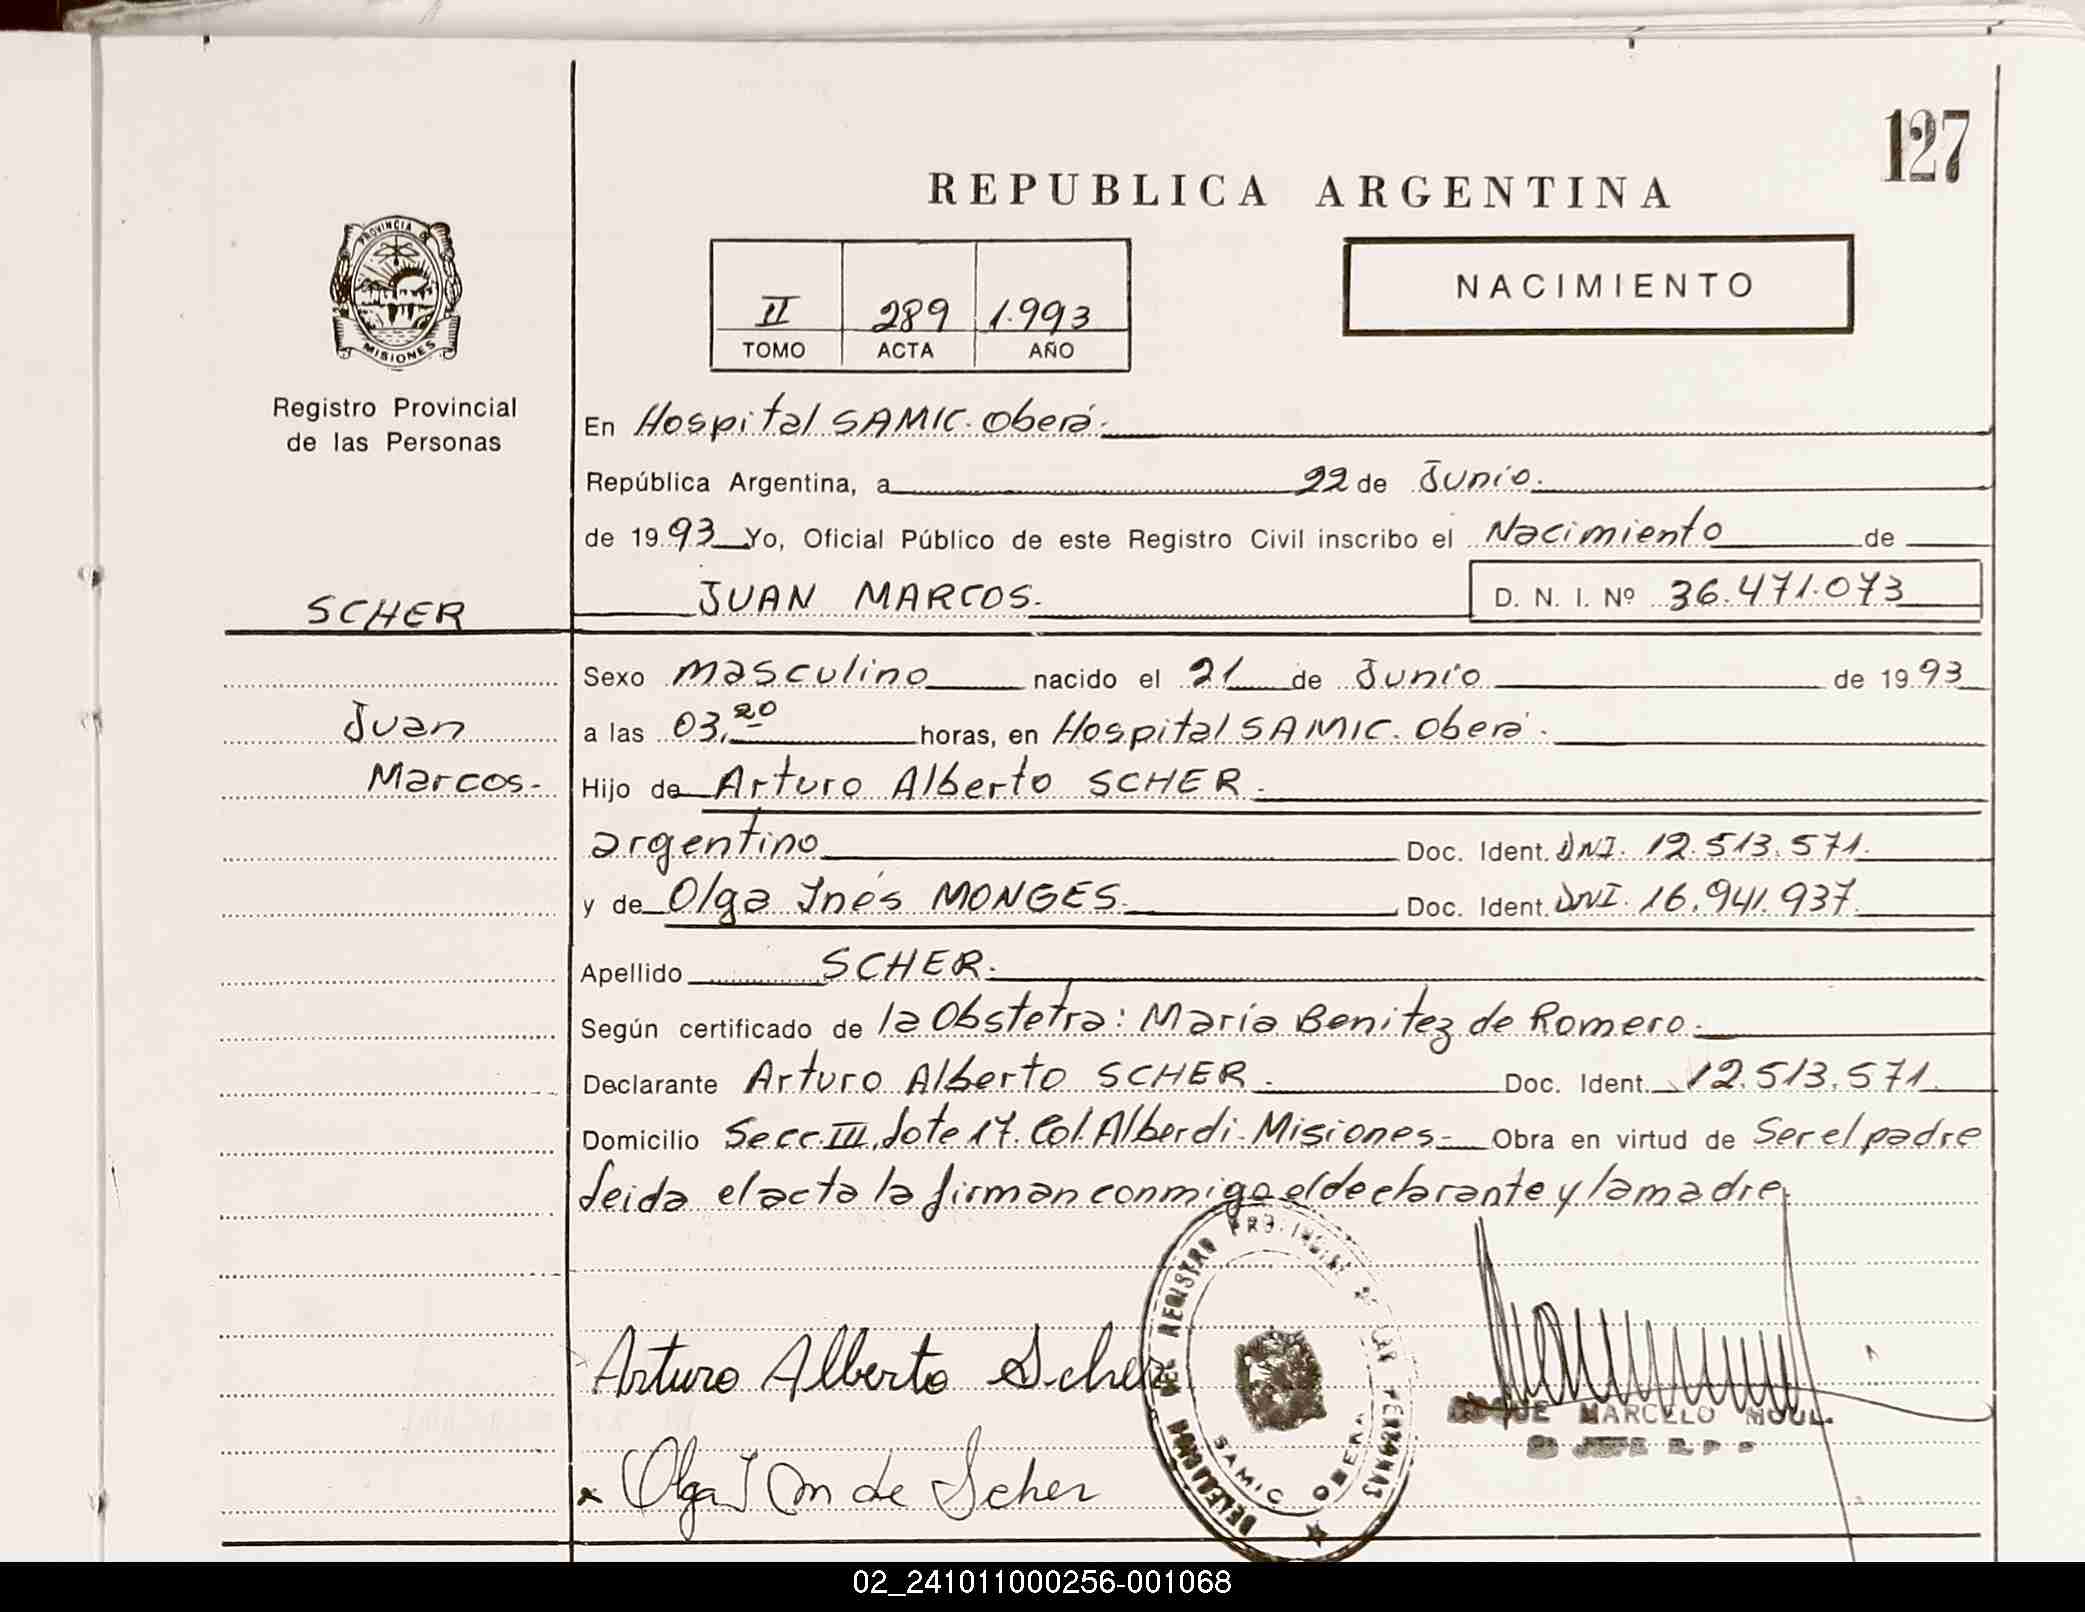 127
REPUBLICA ARGENTINA
PROVINCIA DE
MISIONES
Registro Provincial
de las Personas
II 289 1.993
TOMO ACTA AÑO
NACIMIENTO
En Hospital SAMIC. Oberá.
República Argentina, a 22 de Junio.
de 1993 Yo, Oficial Público de este Registro Civil inscribo el Nacimiento de
SCHER JUAN MARCOS. D. N. I. Nº 36.471.073
Sexo masculino nacido el 21 de Junio de 1993
Juan a las 03,20 horas, en Hospital SAMIC. Oberá.
Marcos.- Hijo de Arturo Alberto SCHER.
argentino Doc. Ident. DNI. 12.513.571.
y de Olga Inés MONGES. Doc. Ident. DNI. 16.941.937.
Apellido SCHER.
Según certificado de la Obstetra: María Benitez de Romero.
Declarante Arturo Alberto SCHER. Doc. Ident. 12.513.571.
Domicilio Secc. III, Lote 17. Col. Alberdi- Misiones- Obra en virtud de Ser el padre
Leida el acta la firman conmigo el declarante y la madre
Arturo Alberto Scher
Olga I de Scher
DELEGACION DEL REGISTRO PROVINCIAL DE LAS PERSONAS
SAMIC OBERA
ROQUE MARCELO
JEFE R. P. P.
02_241011000256-001068